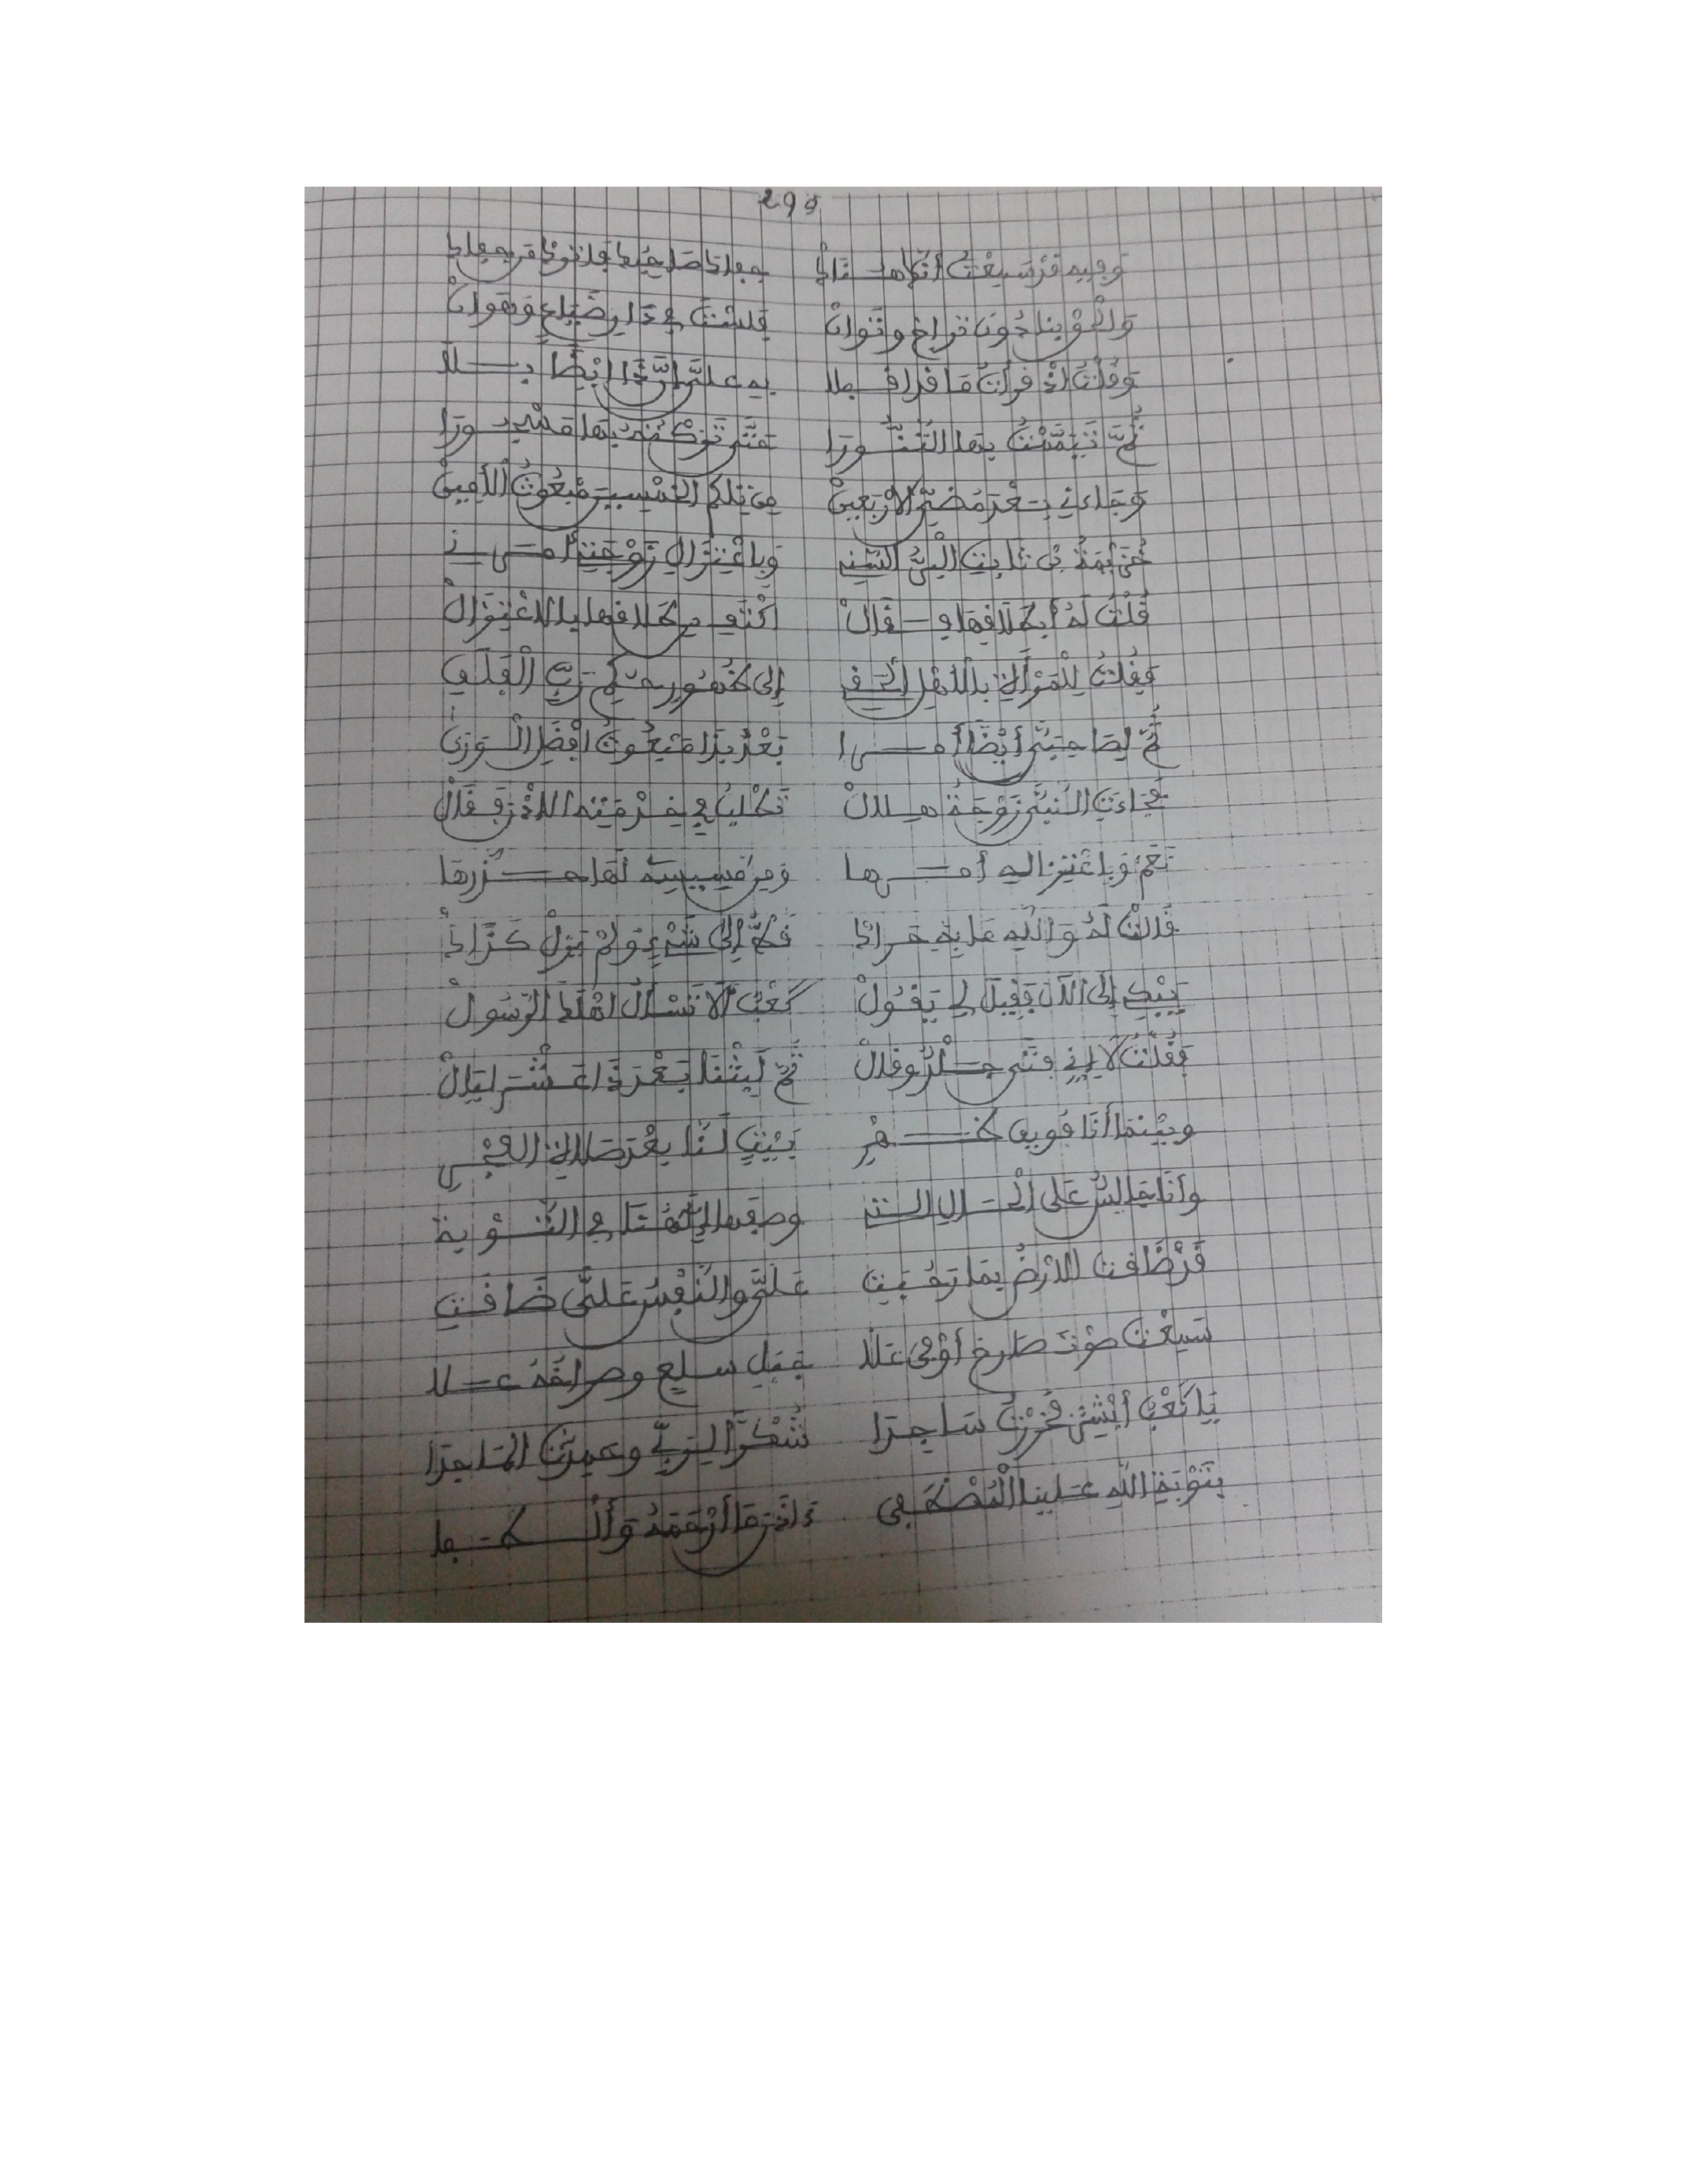 295
وفيه قد سمعت أن هذاك جفاك صاحبك فاترك من جفاك
والحق بنا دون تراخ وتوان فلست في دار ضياع وهوان
وقلت إذ قرأت ما قد أقبلا به علي إن ذا أيضا بلا
ثم تيممت بها التنورا حتى تركته بها مسجورا
وجاءني بعد مضي الأربعين من تلكم الخمسين مبعوث الأمين
خزيمة بن ثابت السنه وباعتزال زوجتي أمرني
قلت له أبطلاقها قال اكتف من طلاقها بالاعتزال
فقلت للمرأة بالأهل الحقي إلى ظهور حكم رب الفلق
ثم لصاحبي أيضا أمرا بعد بذا مبعوث أفضل الورى
فجاءت النبي زوجة هلال تطلب في خدمته الإذن فقال
نعم وباعتزاله أمرها ومن مسيسه لها حذرها
قالت له والله ما به حراك قط إلى شيء ولم يزل كذاك
يبكي إلى الآن فقيل لي يقول كعب ألا تسأل أهلك الرسول
فقلت لا إني فتى جلد وقال ثم لبثنا بعد ذا عشر ليال
وبينما أنا فويق ظهر بيت لنا بعد صلاة الفجر
وأنا جالس على الحال التي وصفها إلهنا في التوبة
قد ضاقت الأرض بما رحبت علي والنفس علي ضاقت
سمعت صوت صارخ أوفى على جبل سلع وصراخه علا
يا كعب أبشر فخررت ساجدا شكرا لربي وحمدت الماجدا
بتوبة الله علينا المصطفى آذن ما أرحمه وألطفا